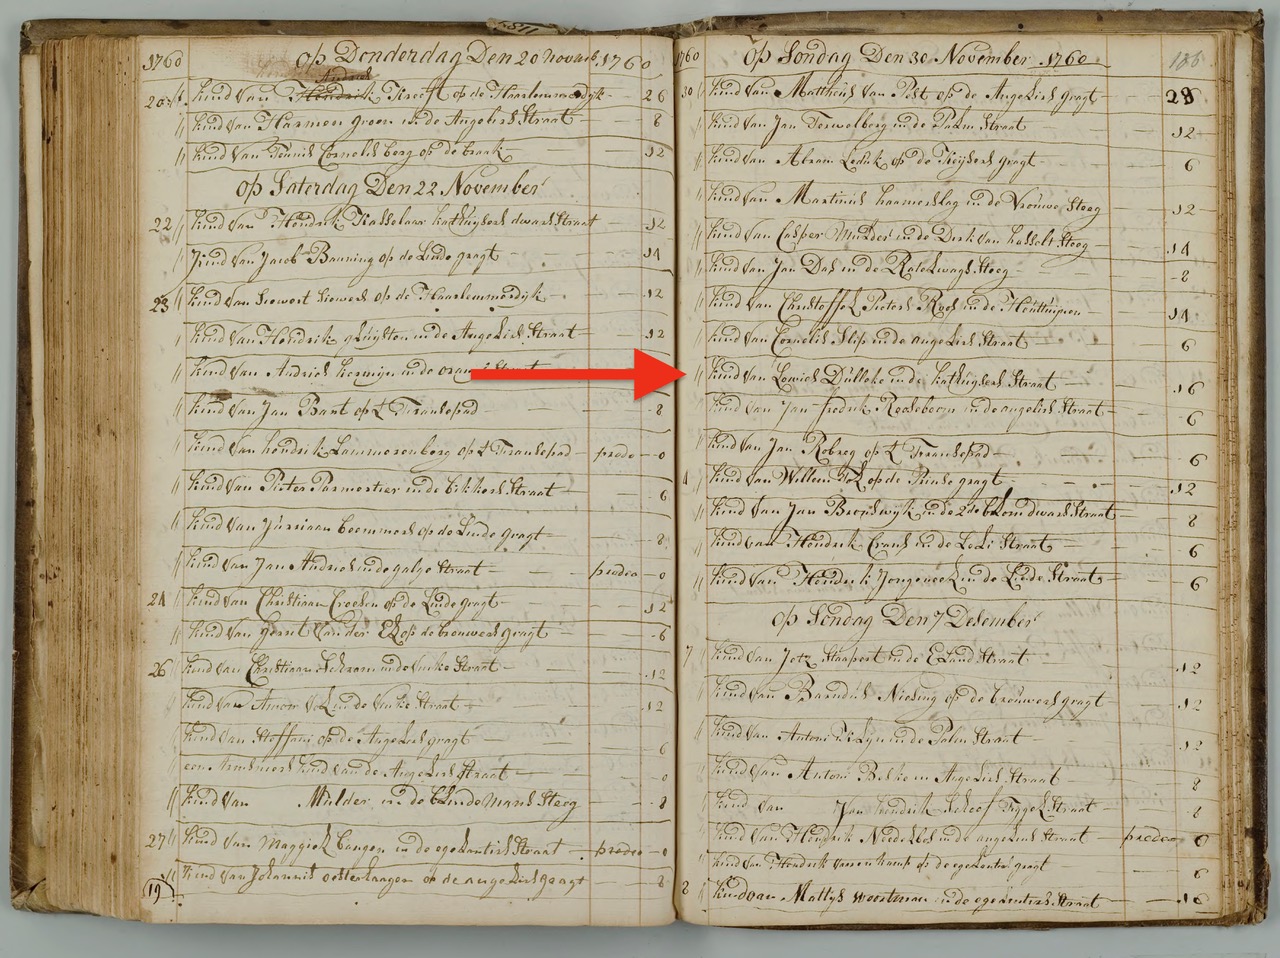 1760 op Donderdag Den 20 Novemb. 1760
Andries
20 Kind van Hendrik Kreeft op de Haarlemmerdyk 26
" Kind van Harmen Groen in de Angeliers Straat 8
" Kind van Teunis Cornelis berg op de braak 12
op Saterdag Den 22 November
22 " Kind van Hendrik Kasselaar katthuysers dwars Straat 12
" Kind van Jacob Banning op de Linde gragt 14
23 " Kind van Siewert Siewers op de Haarlemmerdyk 12
" Kind van Hendrik in de Angeliers Straat 12
" Kind van Andries in de Straat
" Kind van Jan Bant op 't Franse pad 8
" Kind van hendrik Lammerenberg op 't Franse pad prodeo 0
" Kind van Pieter Parmentier in de bikkers Straat 6
" Kind van Jurriaan Beemmers op de Linde gragt 8
" Kind van Jan Andries in de galge Straat prodeo 0
24 " Kind van Christiaan Croesen op de Linde gragt 12
" Kind van gerret van der El op de brouwers gragt 6
26 " Kind van Christiaan Schram in de Vinke Straat 12
" Kind van Vol in de Vinke Straat 12
" Kind van Steffani op de Angeliers gragt 6
een kind van de Angeliers Straat 0
" Kind van Mulder in de blindemans Steeg 8
27 " Kind van bangen in de egelantiers Straat prodeo 0
" Kind van Johannis op de angeliers gragt 8
19
1760 Op Sondag Den 30 November 1760 186
30 " Kind van Mattheus van Pelt op de Angeliers gragt 28
" Kind van Jan Terwelberg in de Palm Straat 12
" Kind van Abram Leduk op de Keysers gragt 6
" Kind van Martinus haamerslag in de Vrouwe Steeg 12
" Kind van Casper Mulder in de Dirk van hasselt Steeg 14
" Kind van Jan Das in de Ratelwags Steeg 8
" Kind van Christoffel Pieters Roos in de Houttuijnen 14
" Kind van Cornelis Slip in de angeliers Straat 6
" Kind van Lowies Dulleke in de katthuysers Straat 16
" Kind van Jan fredrik Rooseboom in de angeliers Straat 6
" Kind van Jan Robreg op 't Franse pad 6
1 Kind van Willem Tol op de Prinse gragt 12
" Kind van Jan Bronswyk in de 2de bloemdwars Straat 8
" Kind van Hendrik Crans in de Leli Straat 6
" Kind van Hendrik Jongeneel in de Linde Straat 6
op Sondag Den 7 Desember
7 " Kind van Jotz Staapert in de Eland Straat 12
" Kind van Barndus Niesing op de brouwers gragt 12
" Kind van Antoni in de Palm Straat 12
" Kind van Antoni Bekke in Angeliers Straat 8
" Kind van Jan hendrik Scheef Tiggel Straat 8
" Kind van Hendrik in de angeliers Straat prodeo 0
" Kind van Hendrik op de egelantiers gragt 6
8 " Kind van Mattys Woortman in de egelantiers Straat 16